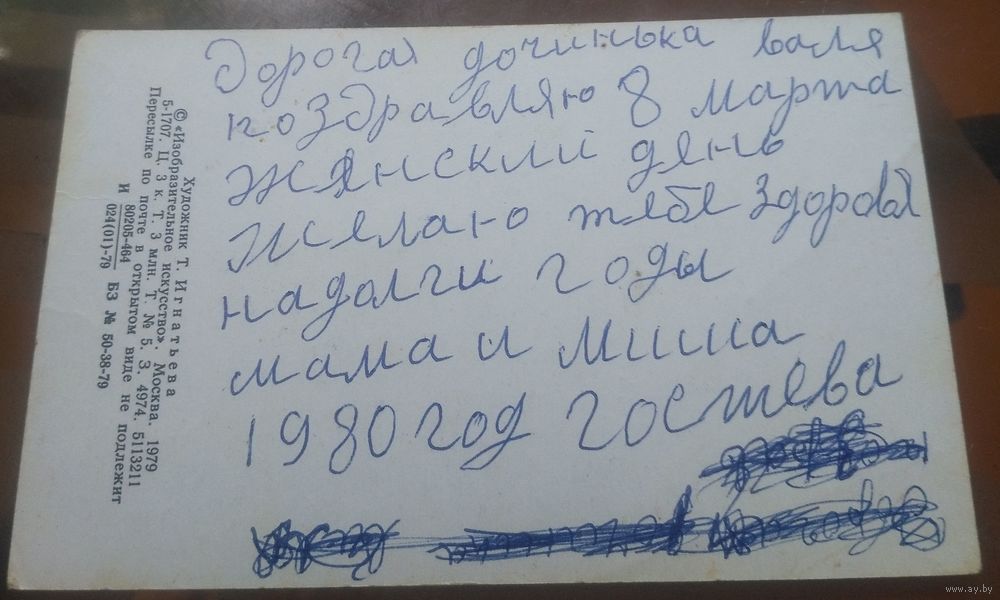 Дорогая дочинька валя
поздравляю 8 марта
Жянский день
Желаю тебе здоровя
надолги годы
мама и Миша
1980 год Гостева
Художник Т. Игнатьева
© «Изобразительное искусство». Москва. 1979
5-1707. Ц. 3 к. Т. 3 млн. Т. № 5. З. 4974. 5113211
Пересылке по почте в открытом виде не подлежит
И 80205-464 024(01)-79 БЗ № 50-38-79
www.ay.by